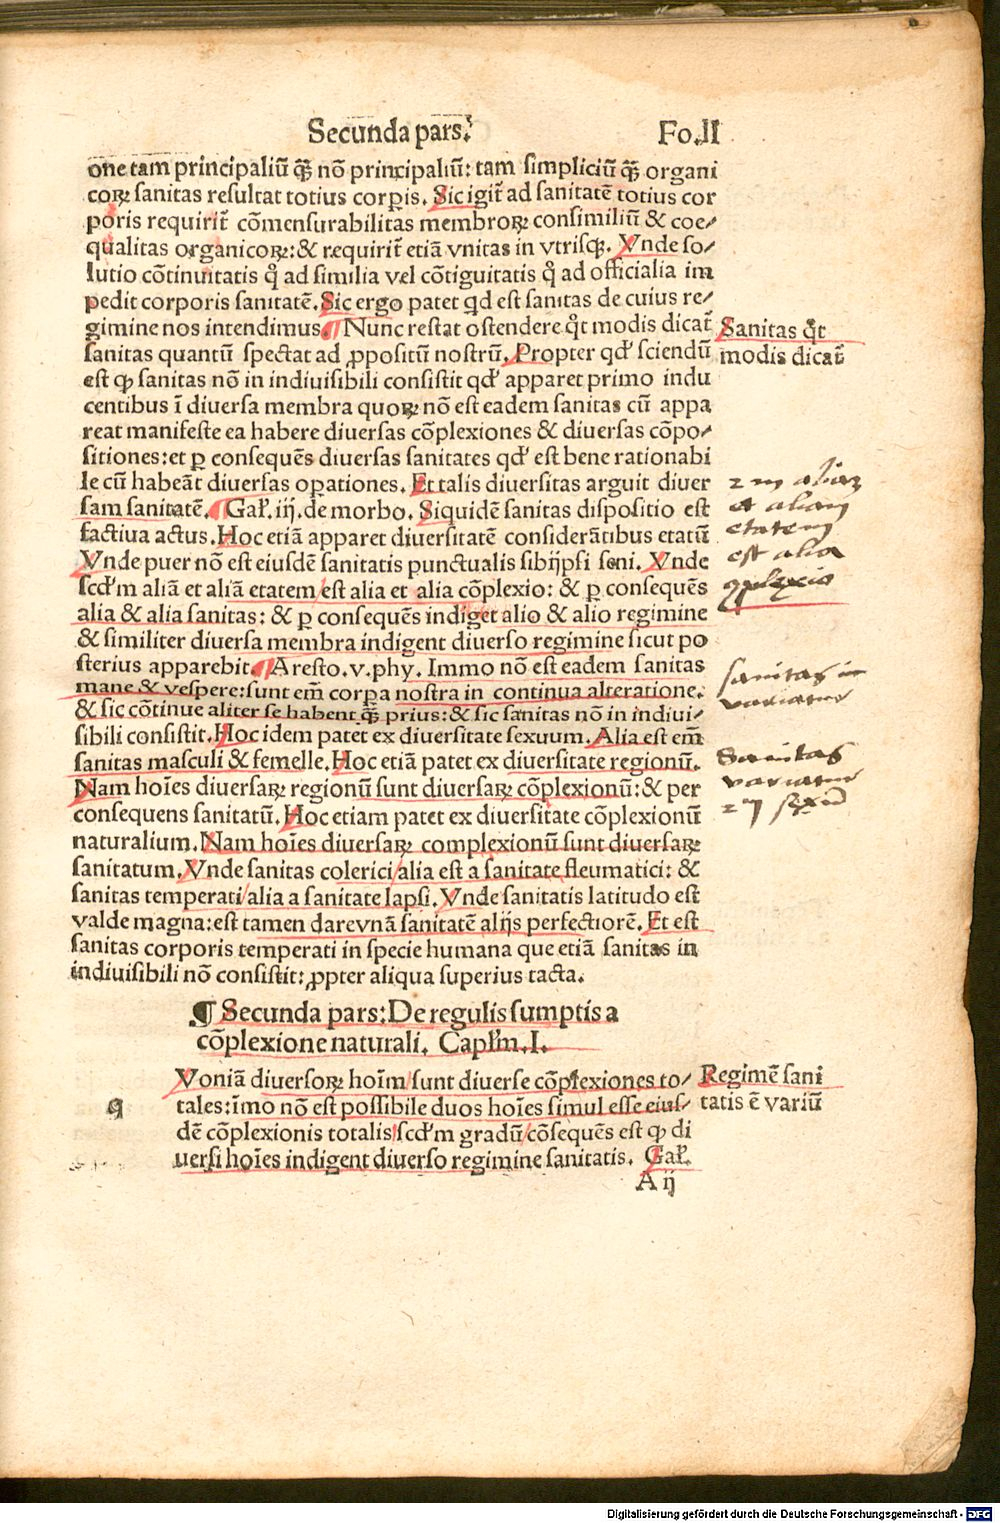 Secunda pars. Fo.II
one tam principaliũ q̃ȝ nõ principaliũ: tam simpliciũ q̃ȝ organi
coꝝ sanitas resultat totius corpis. Sic igit̃ ad sanitatẽ totius cor
poris requirit̃ cõmensurabilitas membroꝝ consimiliũ & coe⸗
qualitas organicoꝝ: & requirit̃ etiã vnitas in vtrisqꝫ. Vnde so⸗
lutio cõtinuitatis q̃ ad similia vel cõtiguitatis q̃ ad officialia im
pedit corporis sanitatẽ. Sic ergo patet qd est sanitas de cuius re⸗
gimine nos intendimus. ¶ Nunc restat ostendere q̃t modis dicat̃
sanitas quantũ spectat ad ꝓpositũ nostrũ. Propter qđ sciendũ
est ꝙ sanitas nõ in indiuisibili consistit qđ apparet primo indu
centibus ĩ diuersa membra quoꝝ nõ est eadem sanitas cũ appa
reat manifeste ea habere diuersas cõplexiones & diuersas cõpo⸗
sitiones: et ꝑ consequẽs diuersas sanitates qđ est bene rationabi
le cũ habeãt diuersas oꝑationes. Et talis diuersitas arguit diuer
sam sanitatẽ. ¶ Gał. iij. de morbo. Siquidẽ sanitas dispositio est
factiua actus. Hoc etiã apparet diuersitatẽ considerãtibus etatũ
Vnde puer nõ est eiusdẽ sanitatis punctualis sibijpsi seni. Vnde
scđm aliã et aliã etatem/est alia et alia cõplexio: & ꝑ consequẽs
alia & alia sanitas: & ꝑ consequẽs indiget alio & alio regimine
& similiter diuersa membra indigent diuerso regimine sicut po
sterius apparebit. ¶ Aresto. v. phy. Immo nõ est eadem sanitas
mane & vespere: sunt em̃ corpa nostra in continua alteratione.
& sic cõtinue aliter se habent q̃ȝ prius: & sic sanitas nõ in indiui⸗
sibili consistit. Hoc idem patet ex diuersitate sexuum. Alia est em̃
sanitas masculi & femelle. Hoc etiã patet ex diuersitate regionũ.
Nam hoĩes diuersaꝝ regionũ sunt diuersaꝝ cõplexionũ: & per
consequens sanitatũ. Hoc etiam patet ex diuersitate cõplexionũ
naturalium. Nam hoĩes diuersaꝝ complexionũ sunt diuersaꝝ
sanitatum. Vnde sanitas colerici/alia est a sanitate fleumatici: &
sanitas temperati/alia a sanitate lapsi. Vnde sanitatis latitudo est
valde magna: est tamen dare vnã sanitatẽ alijs perfectiorẽ. Et est
sanitas corporis temperati in specie humana que etiã sanitas in
indiuisibili nõ consistit: ꝓpter aliqua superius tacta.
Sanitas q̃t
modis dicat̃
2m aliaȝ
et aliam
etatem
est alia
9plexio
sanitas in
variatur
Sanitas
variatur
¶ Secunda pars: De regulis sumptis a
cõplexione naturali. Capłm. I.
q
Voniã diuersoꝝ hoĩm/sunt diuerse cõplexiones to⸗
tales: ĩmo nõ est possibile duos hoĩes simul esse eius⸗
dẽ cõplexionis totalis/scđm gradũ/cõsequẽs est ꝙ di
uersi hoĩes indigent diuerso regimine sanitatis. Gał.
Regimẽ sani
tatis ẽ variũ
A ij
Digitalisierung gefördert durch die Deutsche Forschungsgemeinschaft - DFG